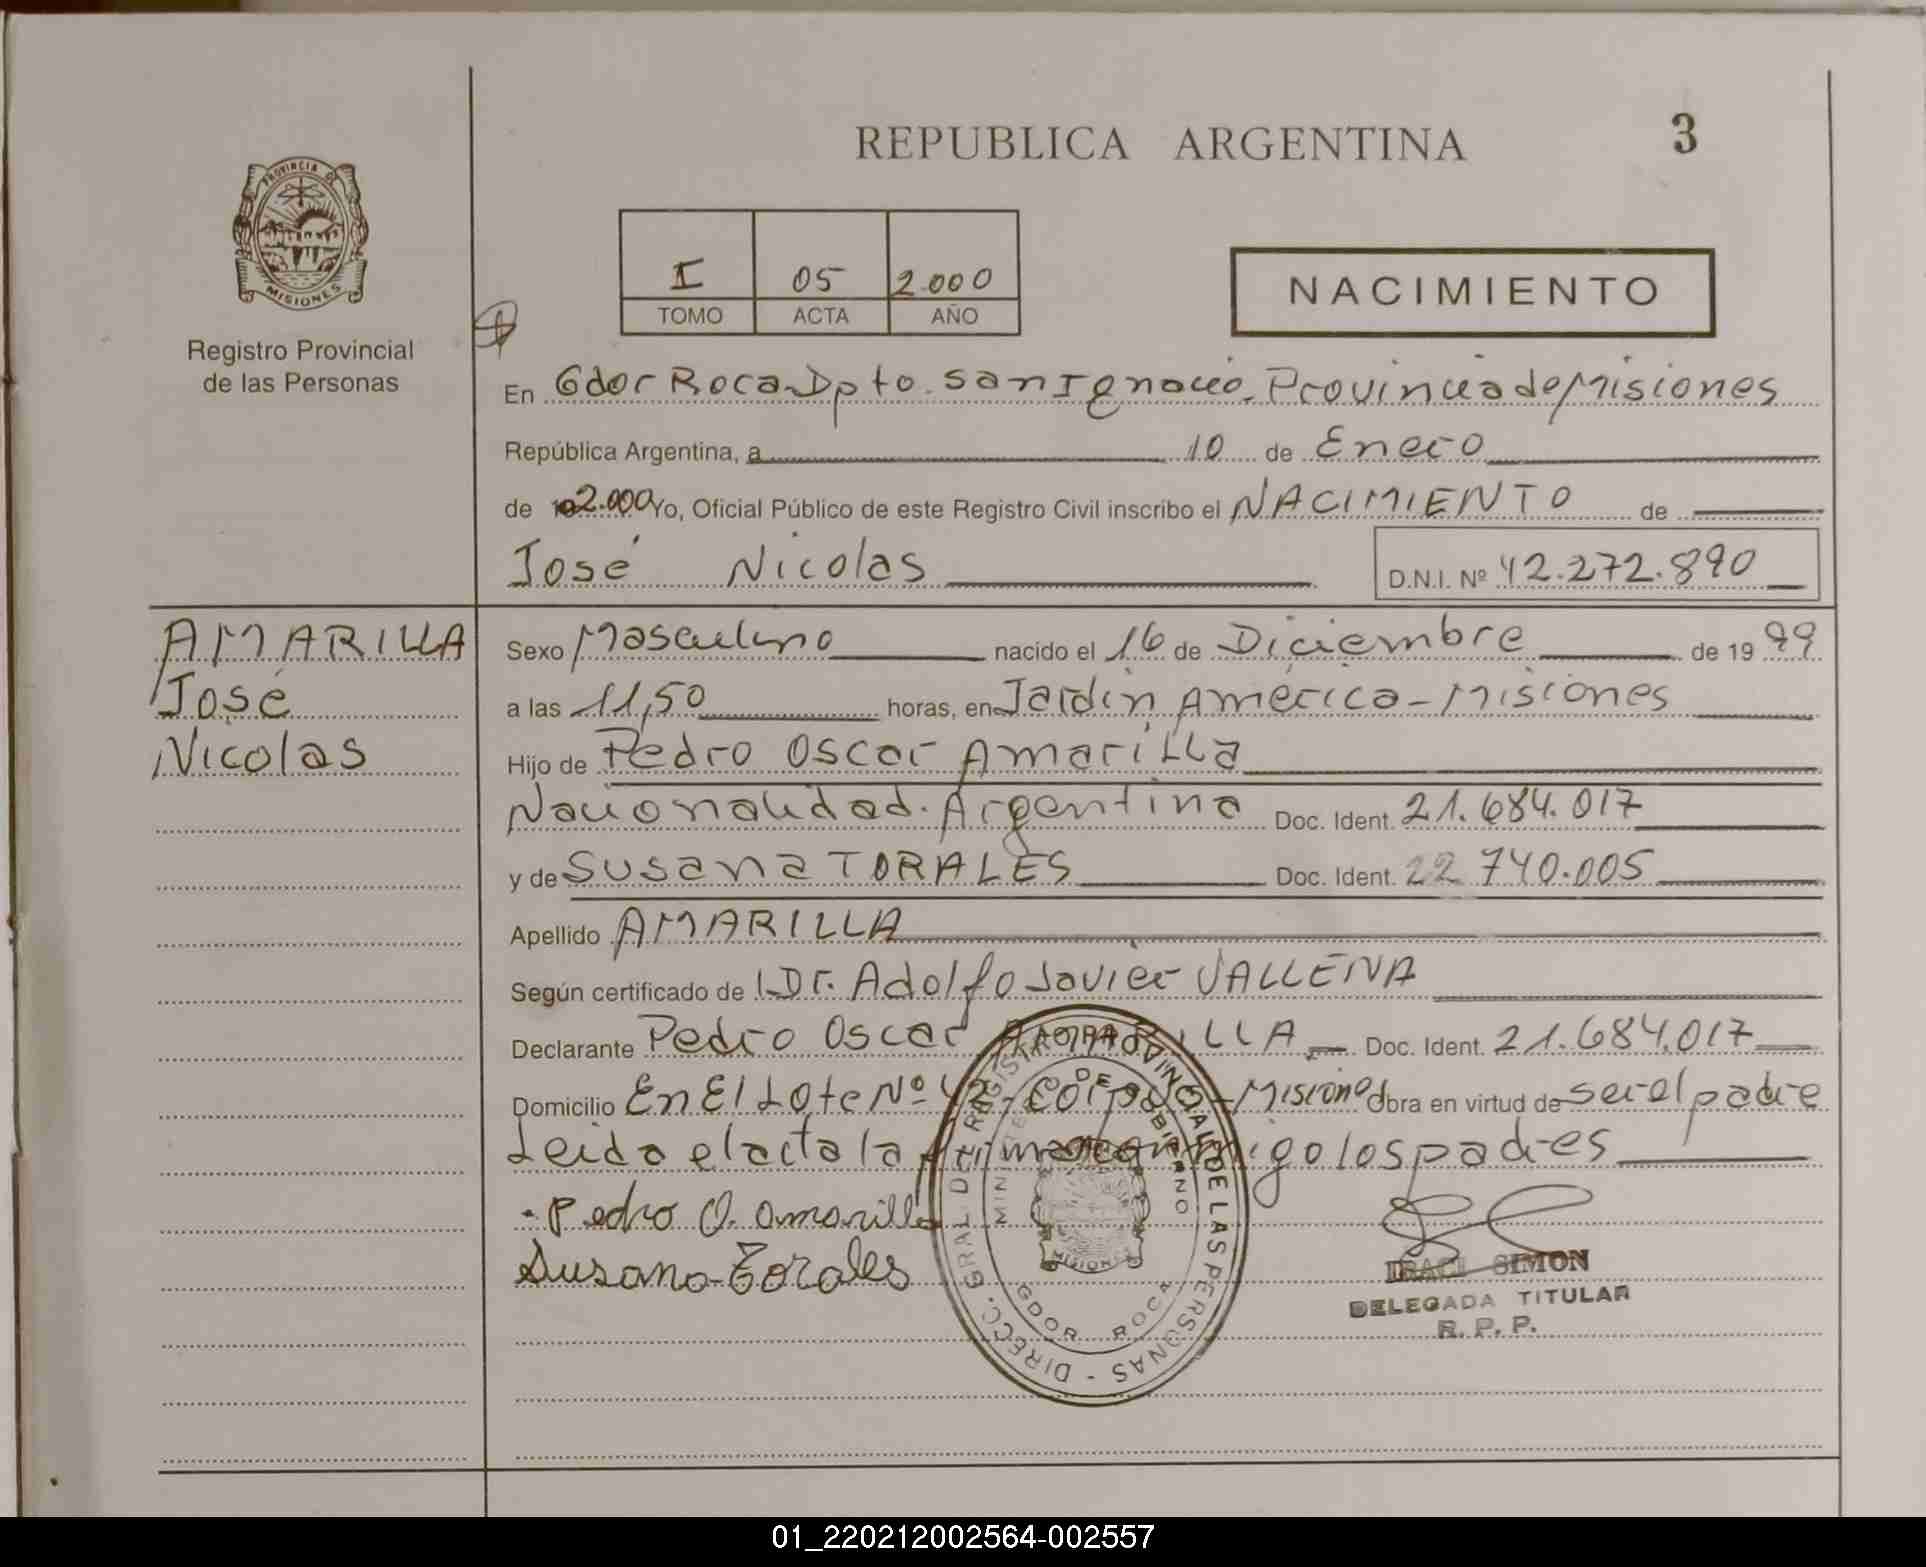 REPUBLICA ARGENTINA
3
PROVINCIA DE
MISIONES
Registro Provincial
de las Personas
I 05 2.000
TOMO ACTA AÑO
NACIMIENTO
En Gdor Roca Dpto. San Ignacio. Provincia de Misiones
República Argentina, a 10 de Enero
de 2.000 Yo, Oficial Público de este Registro Civil inscribo el NACIMIENTO de
José Nicolas D.N.I. Nº 42.272.890
AMARILLA
José
Nicolas
Sexo Masculino nacido el 16 de Diciembre de 19 99
a las 11,50 horas, en Jardín América - Misiones
Hijo de Pedro Oscar Amarilla
Nacionalidad. Argentina Doc. Ident. 21.684.017
y de Susana TORALES Doc. Ident. 22 740.005
Apellido AMARILLA
Según certificado de Dr. Adolfo Javier VALLENA
Declarante Pedro Oscar AMARILLA Doc. Ident. 21.684.017
Domicilio En El Lote Nº 42 - Corpus - Misiones Obra en virtud de ser el padre
Leida el acta la firman conmigo los padres
Pedro O. Amarilla
Susana Torales
DIRECC. GRAL. DE REGISTRO PROVINCIAL DE LAS PERSONAS
MINISTERIO DE GOBIERNO
MISIONES
GDOR ROCA
IRACI SIMON
DELEGADA TITULAR
R. P. P.
01_220212002564-002557